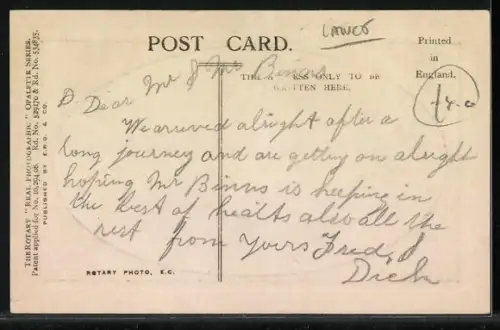 LANCS
POST CARD.
Printed
in
England.
THE ADDRESS ONLY TO BE
WRITTEN HERE.
4.0
D. Dear Mr & Mrs Binns
We arrived alright after a
long journey and are getting on alright
hoping Mr Binns is keeping in
the best of health also all the
rest from yours Fred &
Dick
ROTARY PHOTO, E.C.
THE ROTARY "REAL PHOTOGRAPHIC" OPALETTE SERIES.
Patent applied for No.
PUBLISHED BY E.W.S. & CO.